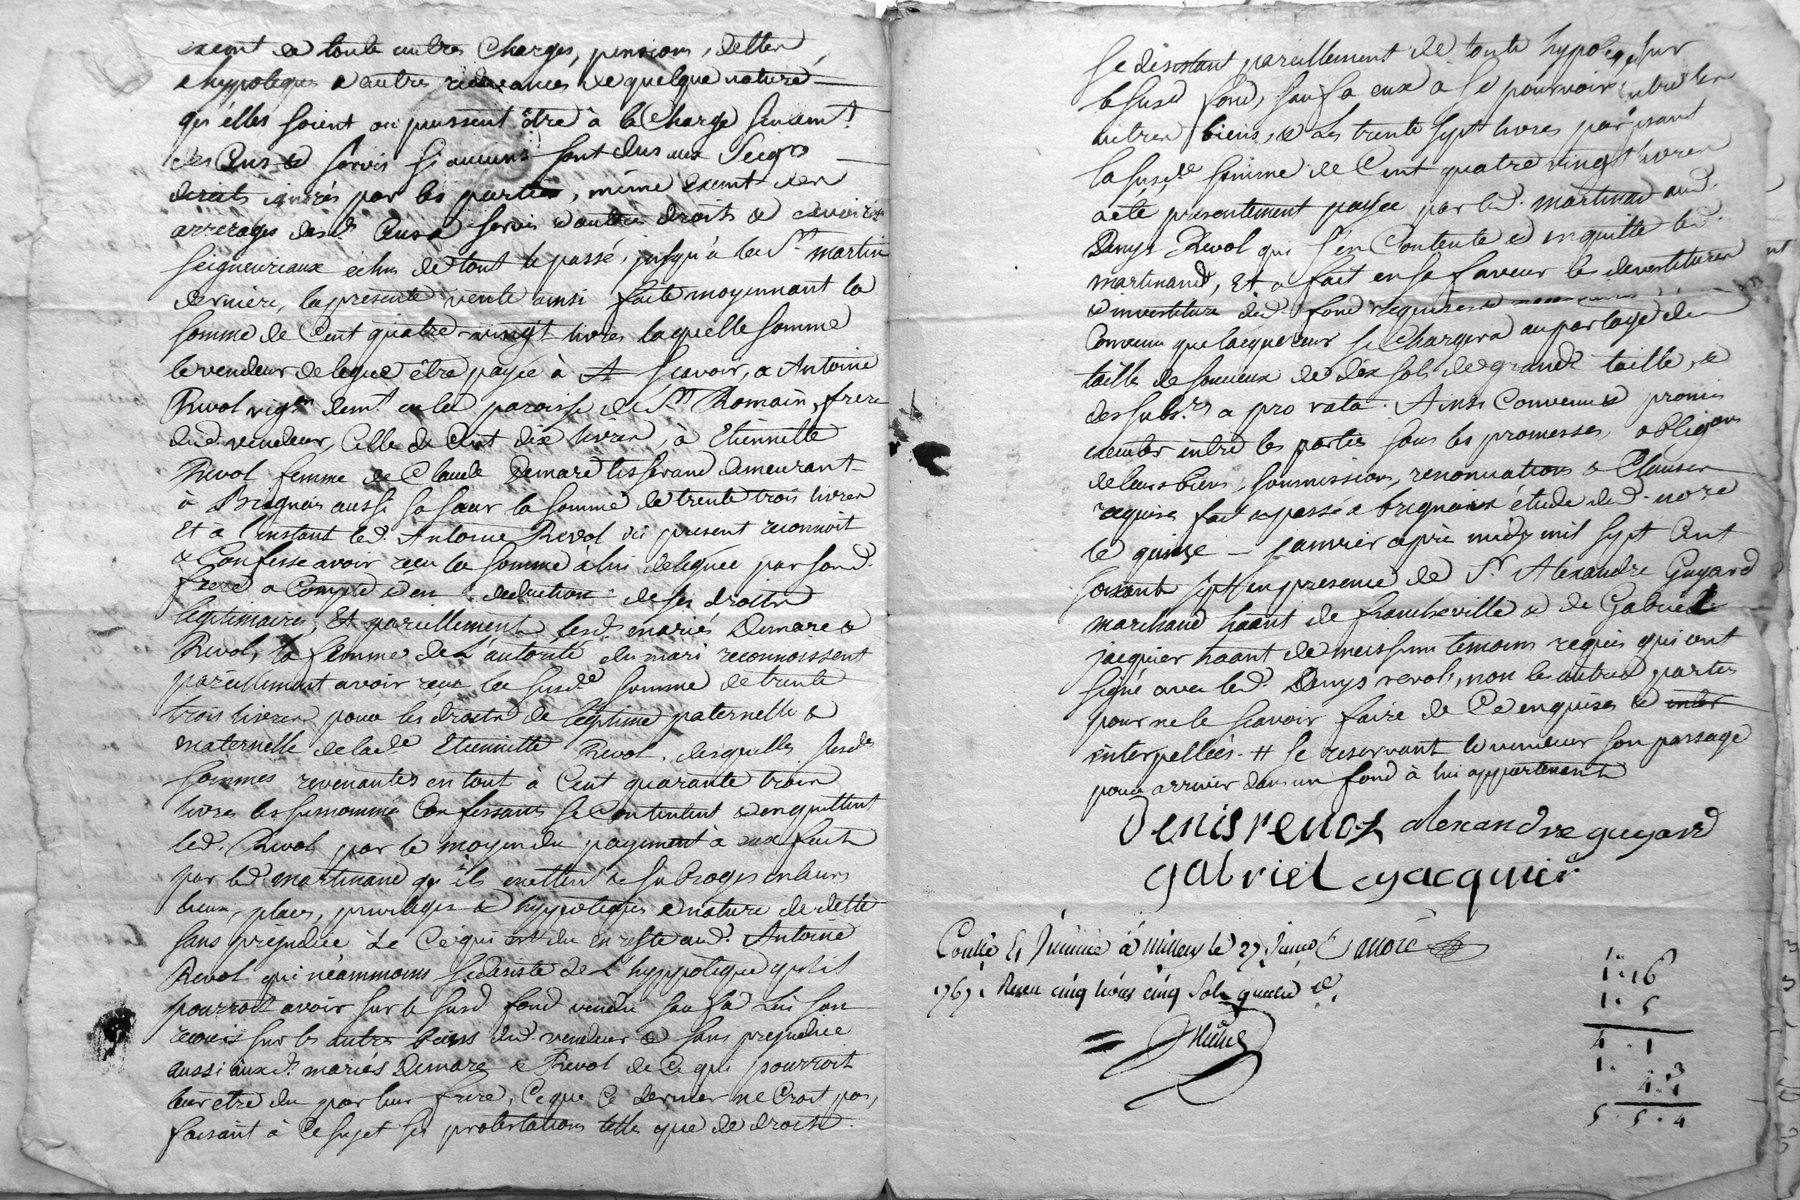 exemt de toute autres Charges, pensions, dettes,
hypoteques & autres redevances de quelque nature
qu'elles soient ou pussent être à la Charge
des Cens & servis si aucuns sont dus aux Seigrs
directs ignorés par les parties, même exemt des
arrerages desd. Cens & servis & autres droits & devoirs
seigneuriaux échus de tout le passé, jusqu'à la St martin
derniere, la presente vente ainsi faite moyennant la
somme de Cent quatre-vingt livres laquelle somme
le vendeur delegue être payée à Scavoir, a Antoine
Revol vigon demt en lad paroisse de St Romain, frere
dud. vendeur, Celle de Cent dix livres, à Etiennette
Revol femme de Claude Demare tisserand demeurant
à Brignais aussi sa sœur la somme de trente trois livres
Et à l'instant led. Antoine Revol ici present reconnoit
& Confesse avoir reçu la somme à lui deleguée par sond.
frere a Compte & en deduction de ses droits
legitimaires, Et pareillement lesd. mariés Demare &
Revol, la femme de L'autorité du mari reconnoissent
pareillement avoir reçu la susde somme de trente
trois livres pour les droits de legitime paternelle &
maternelle de lade Etiennette Revol, desquelles susdes
sommes revenantes en tout à Cent quarante trois
livres les susnommés Confessants se Contentent & en quittent
led. Revol par le moyen du payement à eux fait
par led. martinand qu'ils mettent & subrogés en leurs
lieux, places, privileges & hyppoteques & nature de dette
sans prejudice de Ce qui est du en reste aud. Antoine
Revol qui néammoins se desiste de L'hyppoteque qu'il
pourroit avoir sur le susd fond vendu sauf à Lui son
recours sur les autres biens dud. vendeur & sans prejudice
aussi auxd. mariés Demare & Revol de Ce qui pourroit
leur etre du par leur frere, Ce que Ce dernier ne Croit pas,
faisant à Ce sujet ses protestations telles que de droit.
se desistant pareillement de toute hypoteque sur
le susd fond, sauf a eux à se pourvoir sur les
autres biens, & Les trente sept livres parfaisant
la susde somme de Cent quatre vingt livres
a été presentement payée par led. martinand aud.
Denys Revol qui s'en Contente & en quitte led.
martinand, Et a fait en sa faveur les devestitures
& investiture dud. fond requises &
Convenu que l'acquereur se Chargera au partage de
taille de soucieux de dix sols de grande taille, &
des subsres a pro rata. Ainsi Convenu & promis
executer entre les parties sous les promesses, obligaons
de leurs biens, soumissions, renonciations & Clauses
requises fait & passé à brignais étude dud. nore
le quinze janvier après midy mil sept Cent
soixante sept en presence de Sr Alexandre Guyard
marchand haant de francheville & de Gabriel
jacquier haant de messimi temoins requis qui ont
signé avec led. Denys revol, non les autres parties
pour ne le scavoir faire de Ce enquises & inter
interpellées. # se reservant le vendeur son passage
pour arriver dans un fond à lui appartenant
Denis revol alexandre guyard
gabriel jacquier
Conllé & Jnsinué à Millery le 27 Janvr
1767. Reçu cinq livres cinq sols quatre d.
1. 16
1. 5
4. 1
1.
4. 1
5. 5. 4